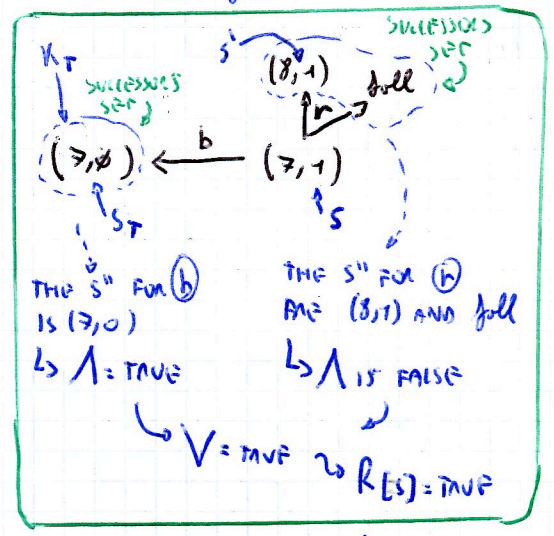 SUCCESSORS
SET
S'
(8,1)
fall
K_T
SUCCESSORS
SET
r
(7,0)
b
(7,1)
S_T
S
THE S" FOR b
IS (7,0)
↳ Λ = TRUE
THE S" FOR r
ARE (8,1) AND fall
↳ Λ IS FALSE
V = TRUE
R[S] = TRUE